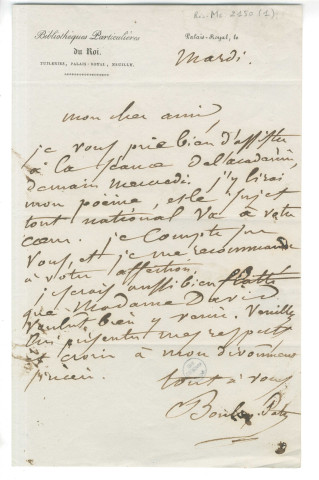 Bibliothèques Particulières
du Roi.
TUILERIES, PALAIS-ROYAL, NEUILLY.
Palais-Royal, le
Mardi.
mon cher ami,
je vous prie bien d'assister
à la séance de l'académie,
demain mercredi. j'y lirai
mon poëme, et le sujet
tout national va à votre
cœur. je compte sur
vous, et je me recommande
à votre affection.
je serais aussi bien flatté
que Madame David
voulut bien y venir. Veuillez
lui présenter mes respects
et croire à mon dévoûment
sincère.
tout à vous
Boulay-Paty